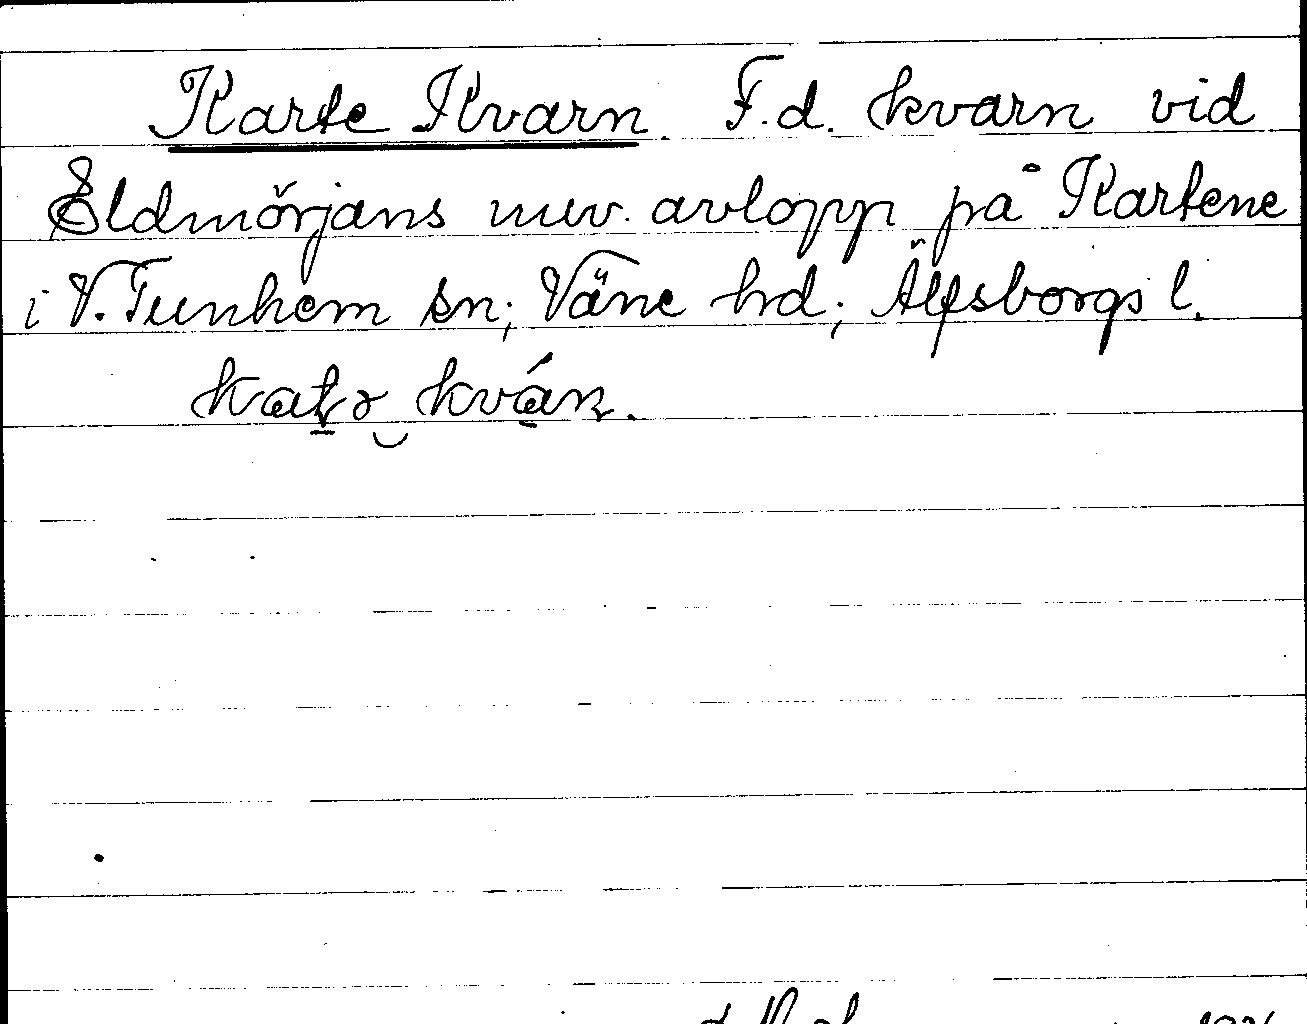 Karte Kvarn. F.d. kvarn vid
Eldmörjans nuv. avlopp på Kartene
i V. Tunhem sn; Väne hd; Älfsborgs l.
kaʈə kván.